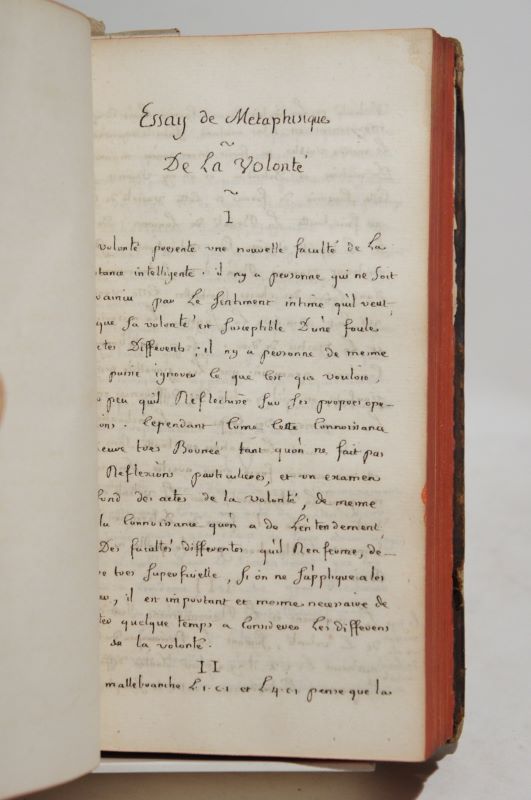 Essay de Metaphisique
De La Volonté
I
volonté presente une nouvelle faculté de La
tance intelligente. il ny a personne qui ne soit
vaincu par Le sentiment intime quil veut,
que sa volonté est susceptible D'une foule
ctes Differents; il ny a personne de mesme
puisse ignorer ce que c'est que vouloir,
peu quil Reflechisse sur ses propres ope-
ons. Cependant come cette connoissance
eure tres Bornée tant qu'on ne fait pas
Reflexions particulieres, et un examen
fond des actes de la volonté, de mesme
la connoissance qu'on a de L'entendement,
Des facultés differentes qu'il Renferme, de-
re tres superficielle, si on ne s'applique a les
, il est important et mesme necessaire de
ter quelque temps a considerer Les differens
de la volonté.
II
mallebranche L1.c.1 et L4.c1 pense que la